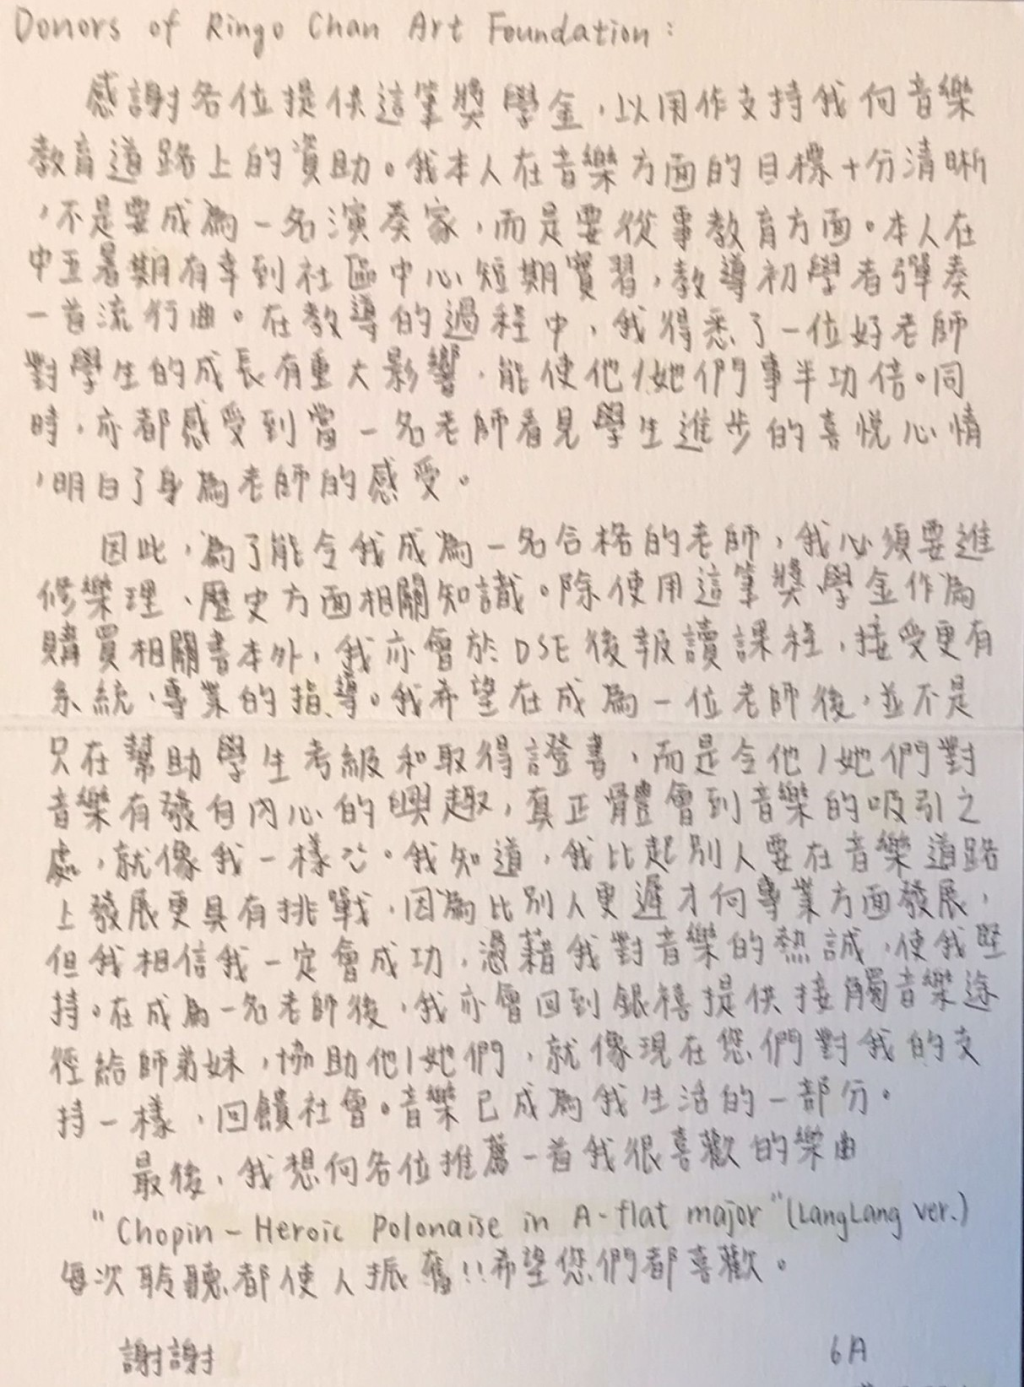 Donors of Ringo Chan Art Foundation:
感謝各位提供這筆獎學金，以用作支持我向音樂
教育道路上的資助。我本人在音樂方面的目標十分清晰
，不是要成為一名演奏家，而是要從事教育方面。本人在
中五暑期有幸到社區中心短期實習，教導初學者彈奏
一首流行曲。在教導的過程中，我得悉了一位好老師
對學生的成長有重大影響，能使他/她們事半功倍。同
時，亦都感受到當一名老師看見學生進步的喜悅心情
，明白了身為老師的感受。
因此，為了能令我成為一名合格的老師，我必須要進
修樂理、歷史方面相關知識。除使用這筆獎學金作為
購買相關書本外，我亦會於DSE後報讀課程，接受更有
系統、專業的指導。我希望在成為一位老師後，並不是
只在幫助學生考級和取得證書，而是令他/她們對
音樂有發自內心的興趣，真正體會到音樂的吸引之
處，就像我一樣。我知道，我比起別人要在音樂道路
上發展更具有挑戰，因為比別人更遲才向專業方面發展，
但我相信我一定會成功，憑藉我對音樂的熱誠，使我堅
持。在成為一名老師後，我亦會回到銀禧提供接觸音樂途
徑給師弟妹，協助他/她們，就像現在您們對我的支
持一樣，回饋社會。音樂已成為我生活的一部分。
最後，我想向各位推薦一首我很喜歡的樂曲
"Chopin - Heroic Polonaise in A-flat major" (LangLang ver.)
每次聆聽都使人振奮!!希望您們都喜歡。
謝謝 6A